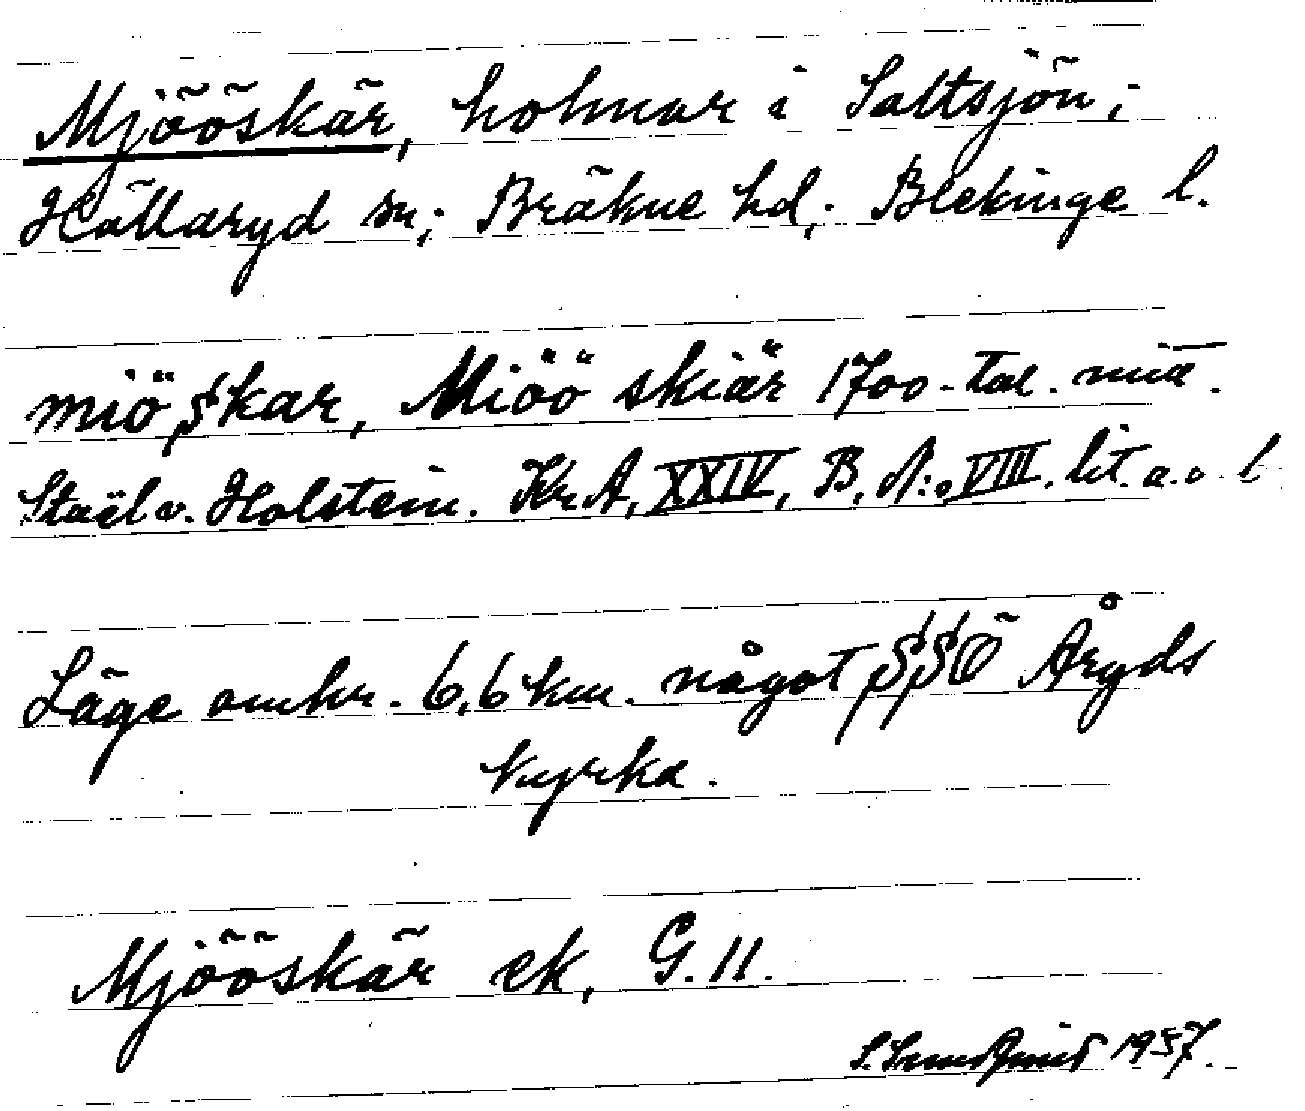 Mjööskär, holmar i Saltsjön;
Hällaryd sn; Bräkne hd, Blekinge l.
miö skar, Miöö skiär 1700-tal. mia.
Staël v. Holstein. Kr A, XXIV, B, N:o VIII. lit. a. o b
Läge omkr. 6,6 km. något SSÖ Åryds
kyrka.
Mjööskär ek, G. 11.
1957.